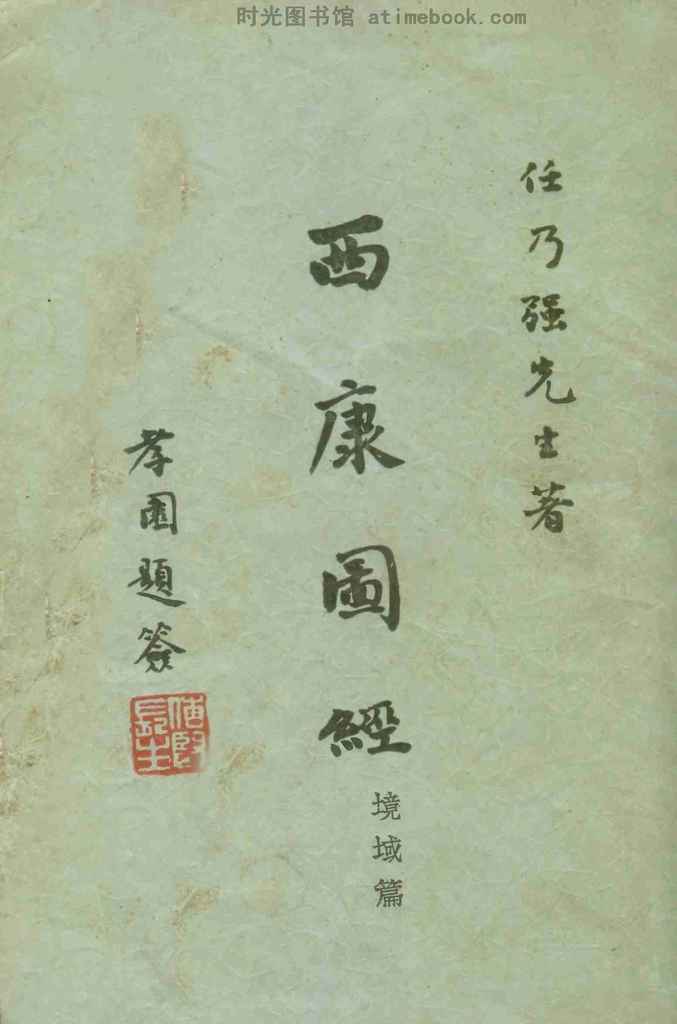 时光图书馆 atimebook.com
任乃强先生著
西康圖經
境域篇
孝園題簽